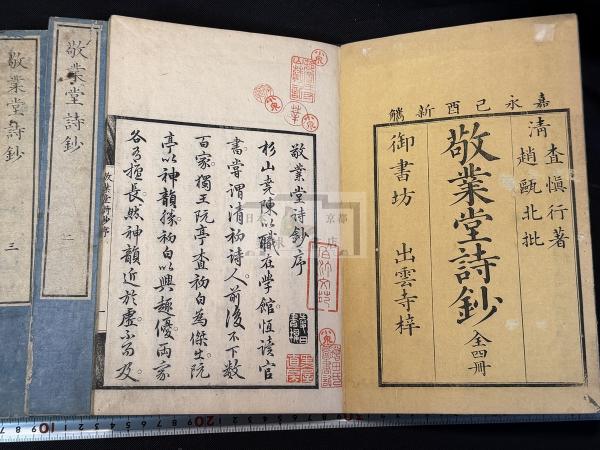 嘉永己酉新鐫
清
查慎行著
趙甌北批
敬業堂詩鈔
全四冊
御書坊 出雲寺梓
敬業堂詩鈔序
杉山堯陳以職在學館恒讀官
書嘗謂清初詩人前後不下數
百家獨王阮亭查初白為傑出阮
亭以神韻勝初白以興趣優兩家
各有擅長然神韻近於虛不可及
敬業堂詩鈔序
一
敬業堂詩鈔
二
敬業堂詩鈔
三